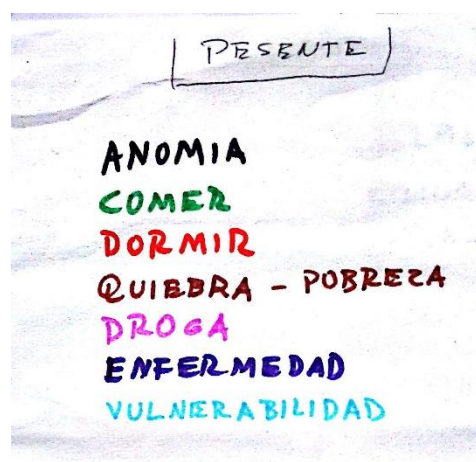 PESENTE
ANOMIA
COMER
DORMIR
QUIEBRA - POBREZA
DROGA
ENFERMEDAD
VULNERABILIDAD